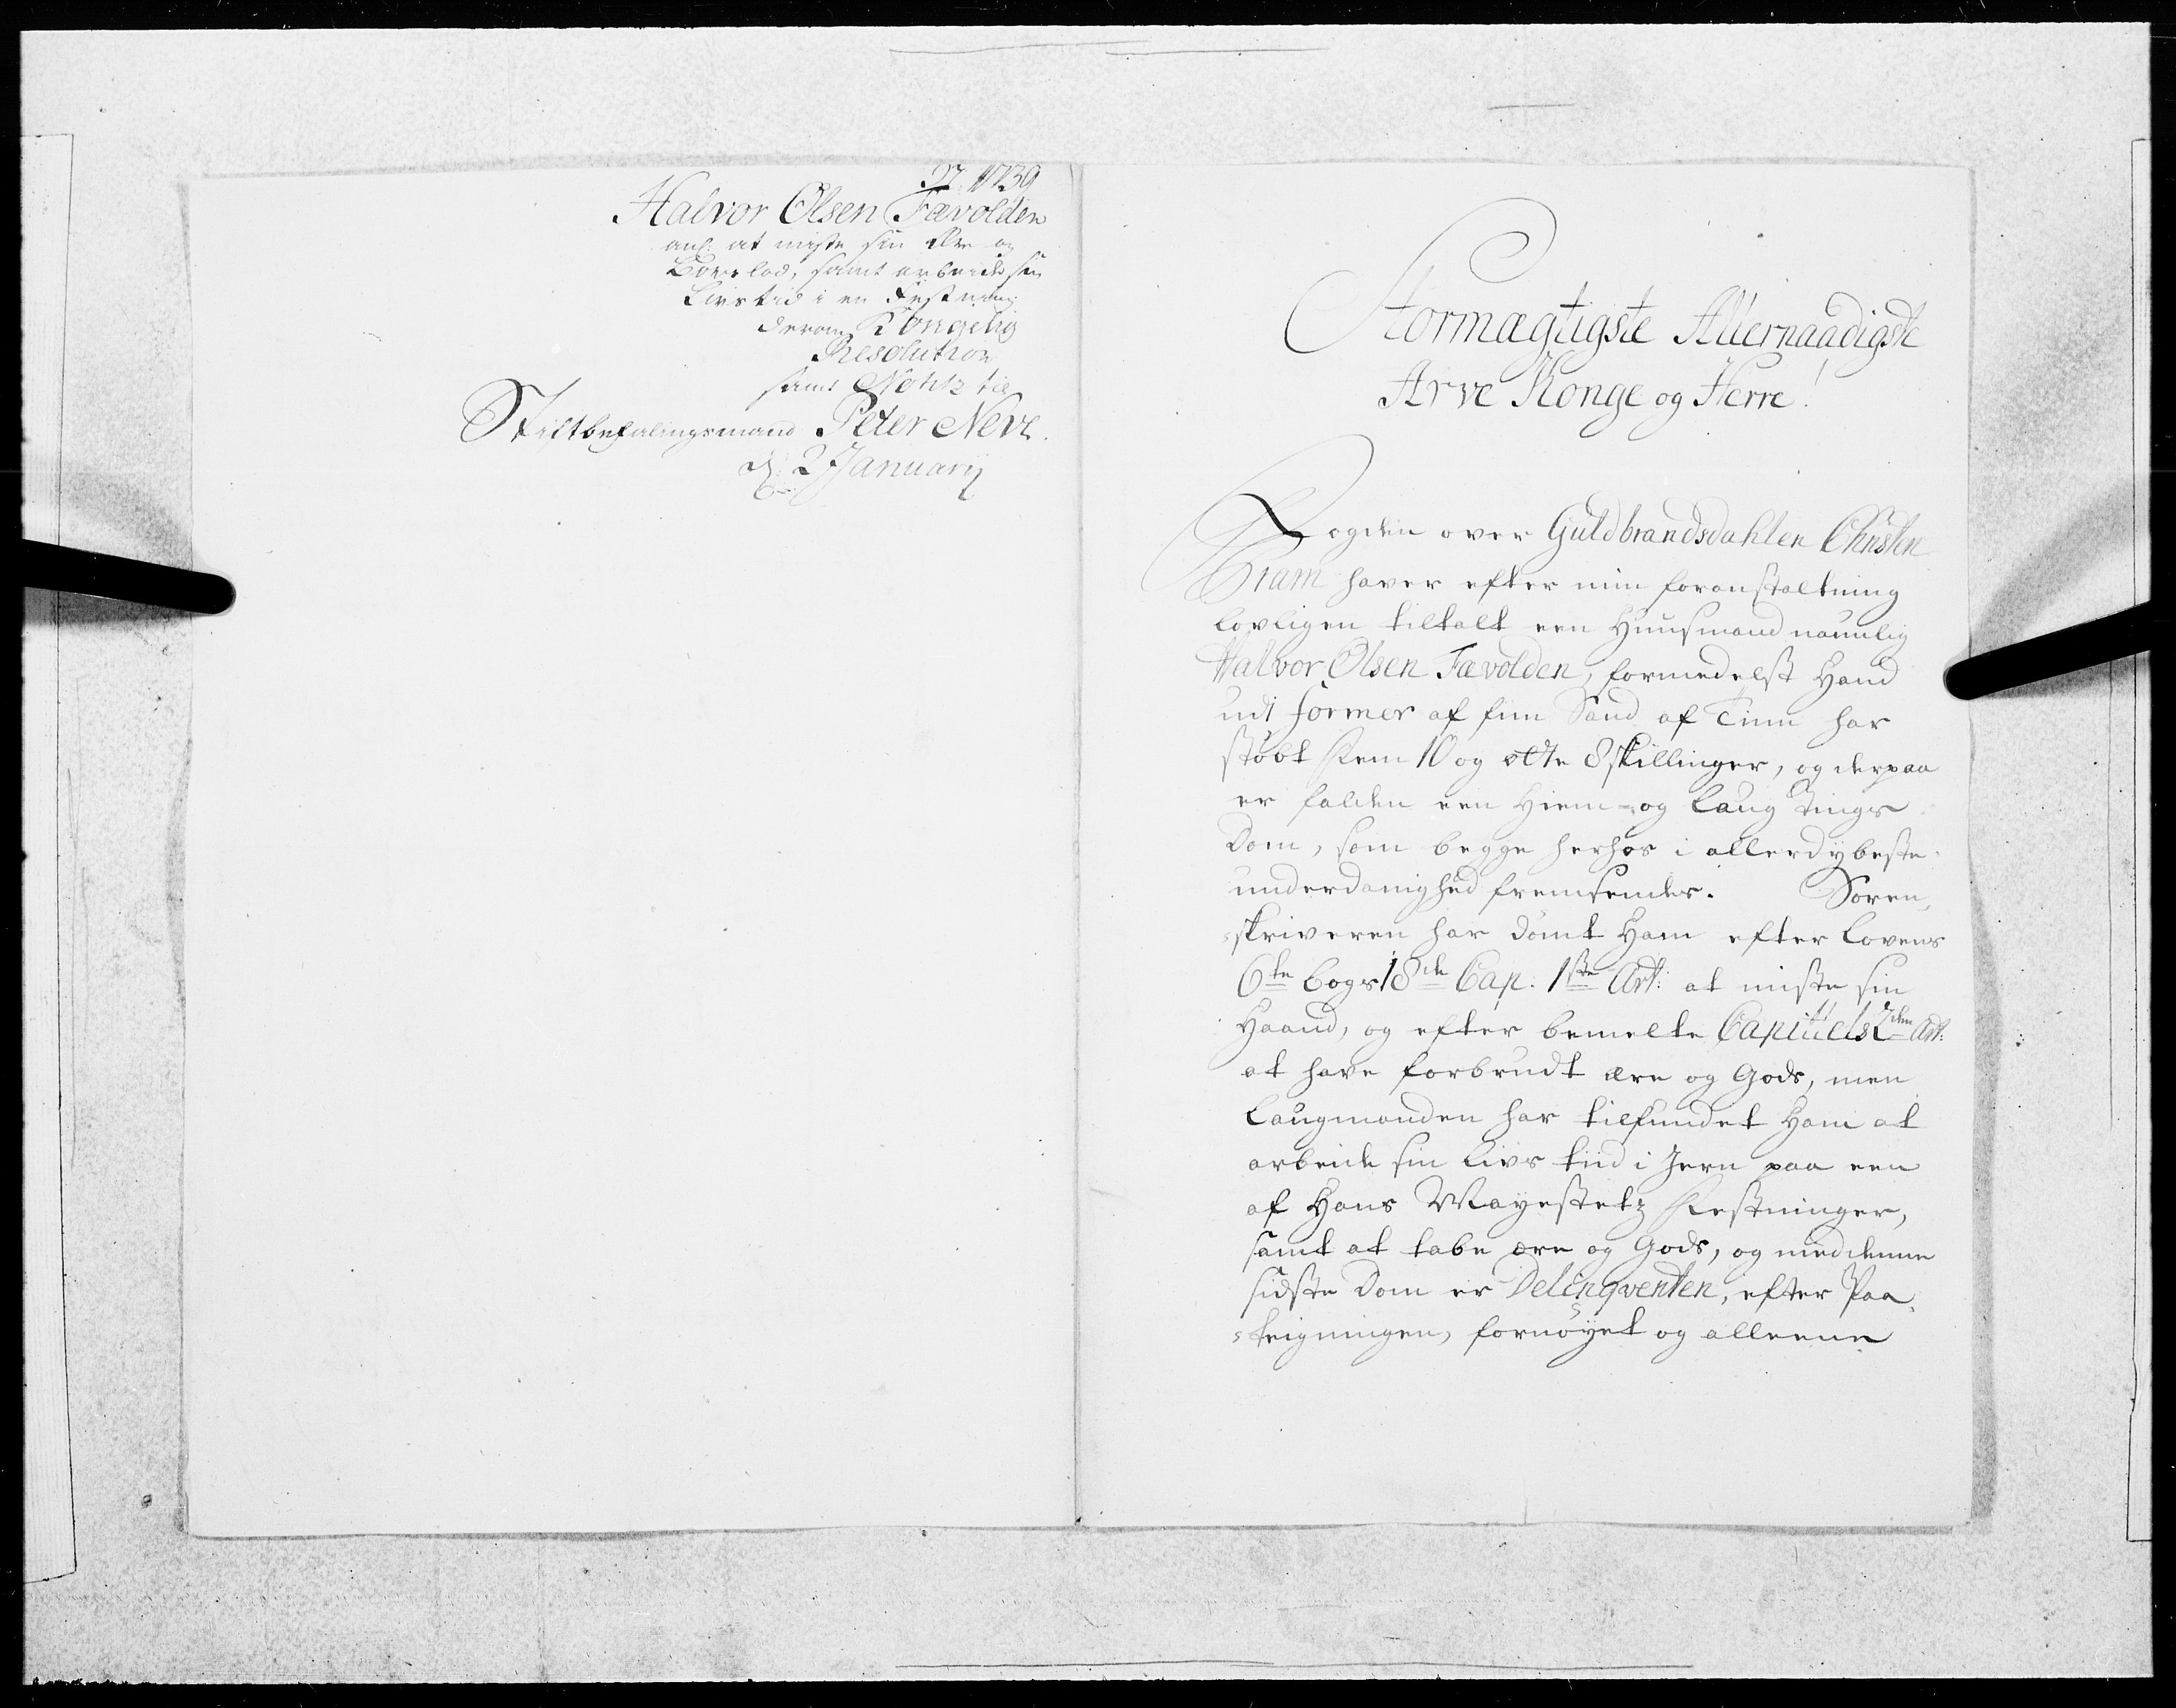 27. 1739
Halvor Olsen Fævolden
anl: at miste sin Ære og
Boeslod, samt arbeide sin
Livs tid i en Festning
derom Kongelig
Resolution
samt Notitz til
Stiftbefalingsmand Peter Neve.
d: 2 Januarij
Stormægtigste Allernaadigste
Arve Konge og Herre!
Fogden over Guldbrandsdahlen Christen
Pram haver efter min foranstaltning
lovligen tiltalt een Huusmand naunlig
Halvor Olsen Fævolden, formedelst Hand
udi former af fiin Sand af Tinn har
støbt Fem 10 og otte 8 skillinger, og derpaa
er falden een Hiem- og Laug Tings
Dom, som begge herhos i allerdybeste
underdanighed fremsendes. Soren-
skriveren har dømt Ham efter Lovens
6te bogs 18de Cap: 1ste Art: at miste sin
Haand, og efter bemelte Capituls 2den Art:
at have forbrudt ære og Gods, men
Laugmanden har tilfundet Ham at
arbeide sin Livs tiid i Jern paa een
af Hans Mayestetz Festninger,
samt at tabe ære og Gods, og med denne
sidste Dom er Delinqventen, efter Paa-
teigningen, fornøyet og alleene